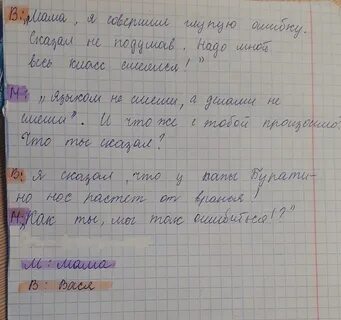 В: „Мама, я совершил глупую ошибку.
Сказал не подумав. Надо мной
весь класс смеялся!"
М: „Языком не спеши, а делами не
смеши". И что же с тобой произошло?
Что ты сказал?
В: Я сказал, что у папы Бурати-
но нос растет от вранья!
М: „Как ты, мог так ошибиться!?"
М: Мама
В: Вася